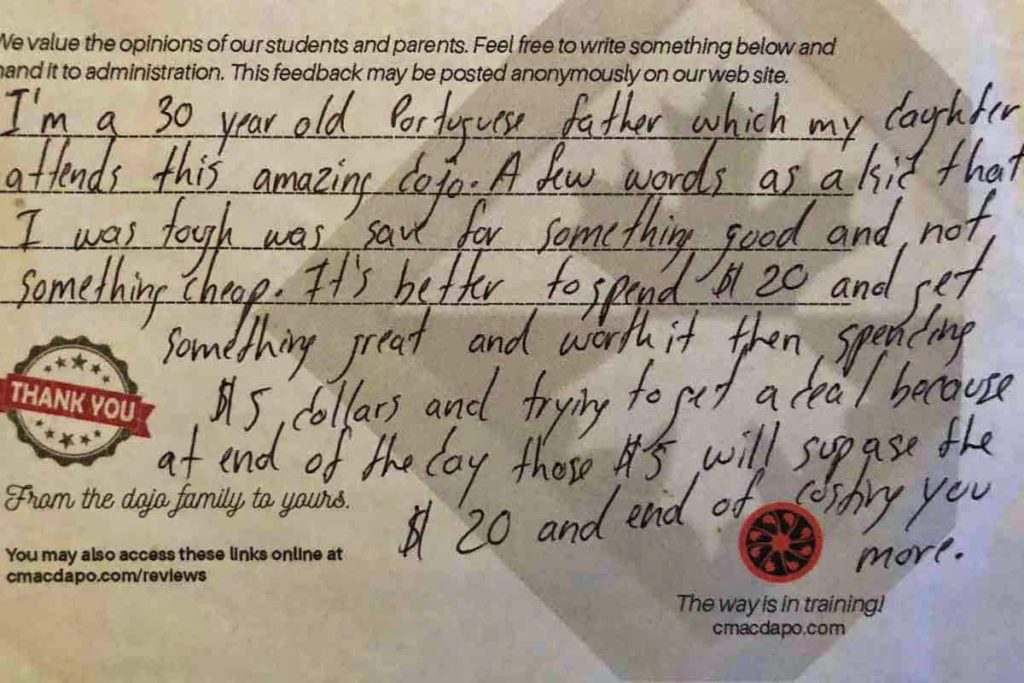 We value the opinions of our students and parents. Feel free to write something below and
hand it to administration. This feedback may be posted anonymously on our web site.
I'm a 30 year old Portuguese father which my daughter
attends this amazing dojo. A few words as a kid that
I was tough was save for something good and not
something cheap. It's better to spend $20 and get
something great and worth it then spending
$5 dollars and trying to get a deal because
at end of the day those $5 will supase the
$20 and end of costing you
more.
THANK YOU
From the dojo family to yours.
You may also access these links online at
cmacdapo.com/reviews
The way is in training!
cmacdapo.com